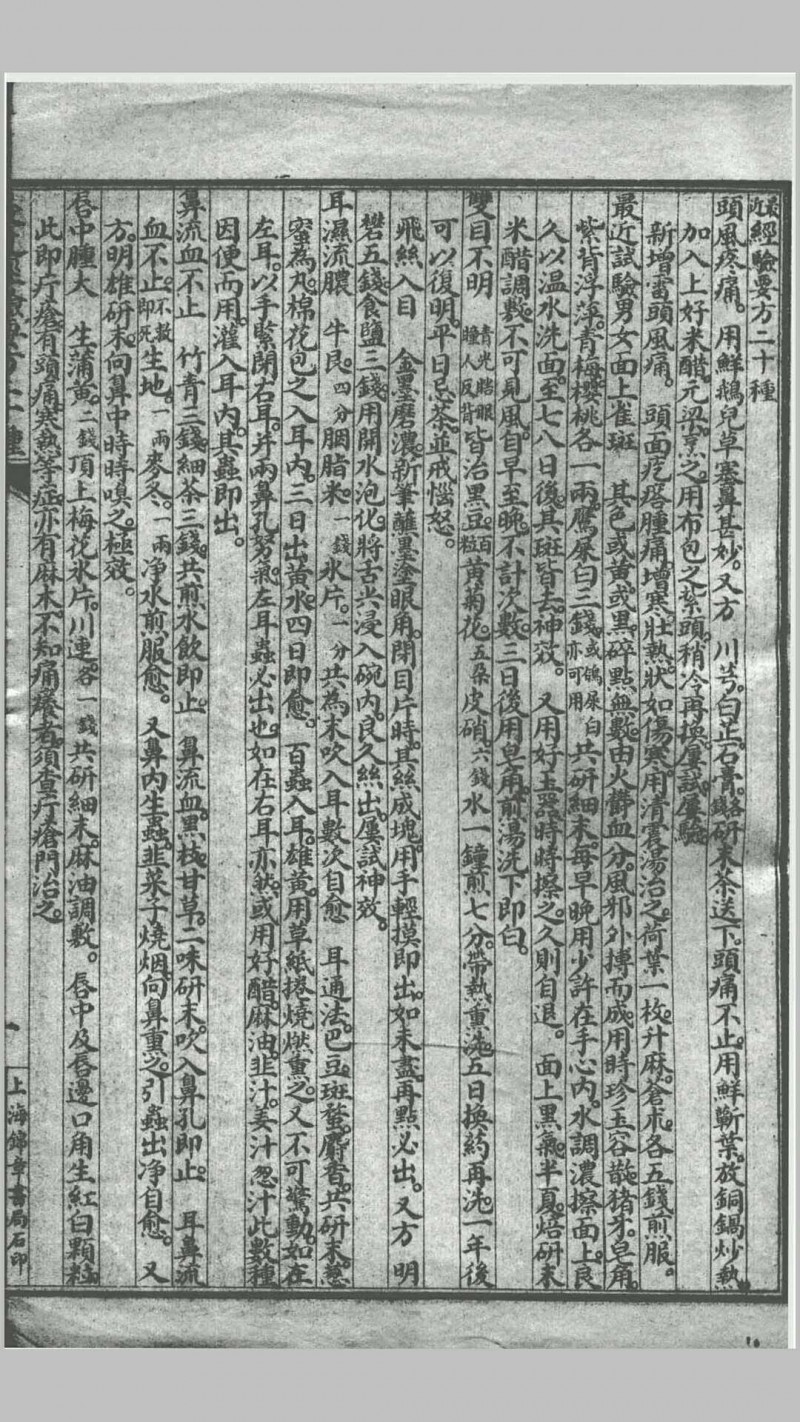 最近經驗要方二十種
頭風疼痛。用鮮鵝兒草塞鼻甚妙。又方　川芎。白芷。石膏。各錢研末茶送下。頭痛不止。用鮮蘄葉。放銅鍋炒熱
加入上好米醋。元梁。烹之。用布包之紮頭。稍冷再換。屢試屢驗
新增雷頭風痛。頭面疙瘩腫痛。增寒壯熱。狀如傷寒。用清震湯治之。荷葉一枚。升麻。蒼朮。各五錢煎服。
最近試驗男女面上雀斑　其色或黃。或黑。碎點無數。由火鬱血分。風邪外搏而成。用時珍玉容散。猪牙。皂角。
紫背浮萍。青梅。櫻桃。各一兩。鷹屎白三錢。或鴿屎白亦可用共研細末。每早晚用少許在手心內。水調濃擦面上。良
久以温水洗面。至七八日後。其斑皆去。神效。又用好玉器時時擦之。久則自退。　面上黑氣。半夏。焙研末
米醋調敷。不可見風。自早至晚。不計次數。三日後用皂角。煎湯洗下即白。
雙目不明　青光瞎眼瞳人反背皆治黑豆。百粒黃菊花。五朵皮硝。六錢水一鐘煎七分。帶熱熏洗。五日換葯再洗。一年後
可以復明。平日忌茶並戒惱怒。
飛絲入目　金墨磨濃。新筆蘸墨塗眼角。閉目片時。其絲成塊。用手輕摸即出。如未盡。再點必出。又方　明
礬五錢。食鹽三錢。用開水泡化。將舌尖浸入碗內。良久絲出。屢試神效。
耳濕流膿　牛艮。四分胭脂米。一錢氷片。一分共為末吹入耳數次自愈　耳通法。巴豆。斑蝥。麝香。共研末。葱
蜜為丸。棉花包之入耳內。三日出黃水。四日即愈。　百蟲入耳。雄黃。用草紙捲燒燃熏之。又不可驚動。如在
左耳。以手緊閉右耳。并兩鼻孔努氣。左耳蟲必出也。如在右耳亦然。或用好醋。麻油。韭汁。姜汁忽汁此數種
因便而用。灌入耳內。其蟲即出。
鼻流血不止　竹青三錢。細茶三錢。共煎水飲即止　鼻流血。黑枝。甘草。二味研末。吹入鼻孔即止　耳鼻流
血不止。不救即死生地。一兩麥冬。一兩净水煎服愈。　又鼻內生蟲。韭菜子燒烟。向鼻熏之。引蟲出净自愈。又
方。明雄研末。向鼻中時時嗅之。極效。
唇中腫大　生蒲黃。二錢頂上梅花氷片。川連。各一錢共研細末。麻油調敷。　唇中及唇邊口角生紅白顆粒。
此即疔瘡。有頭痛寒熱等症。亦有麻木。不知痛癢者。須查疔瘡門治之。
上海錦章書局石印